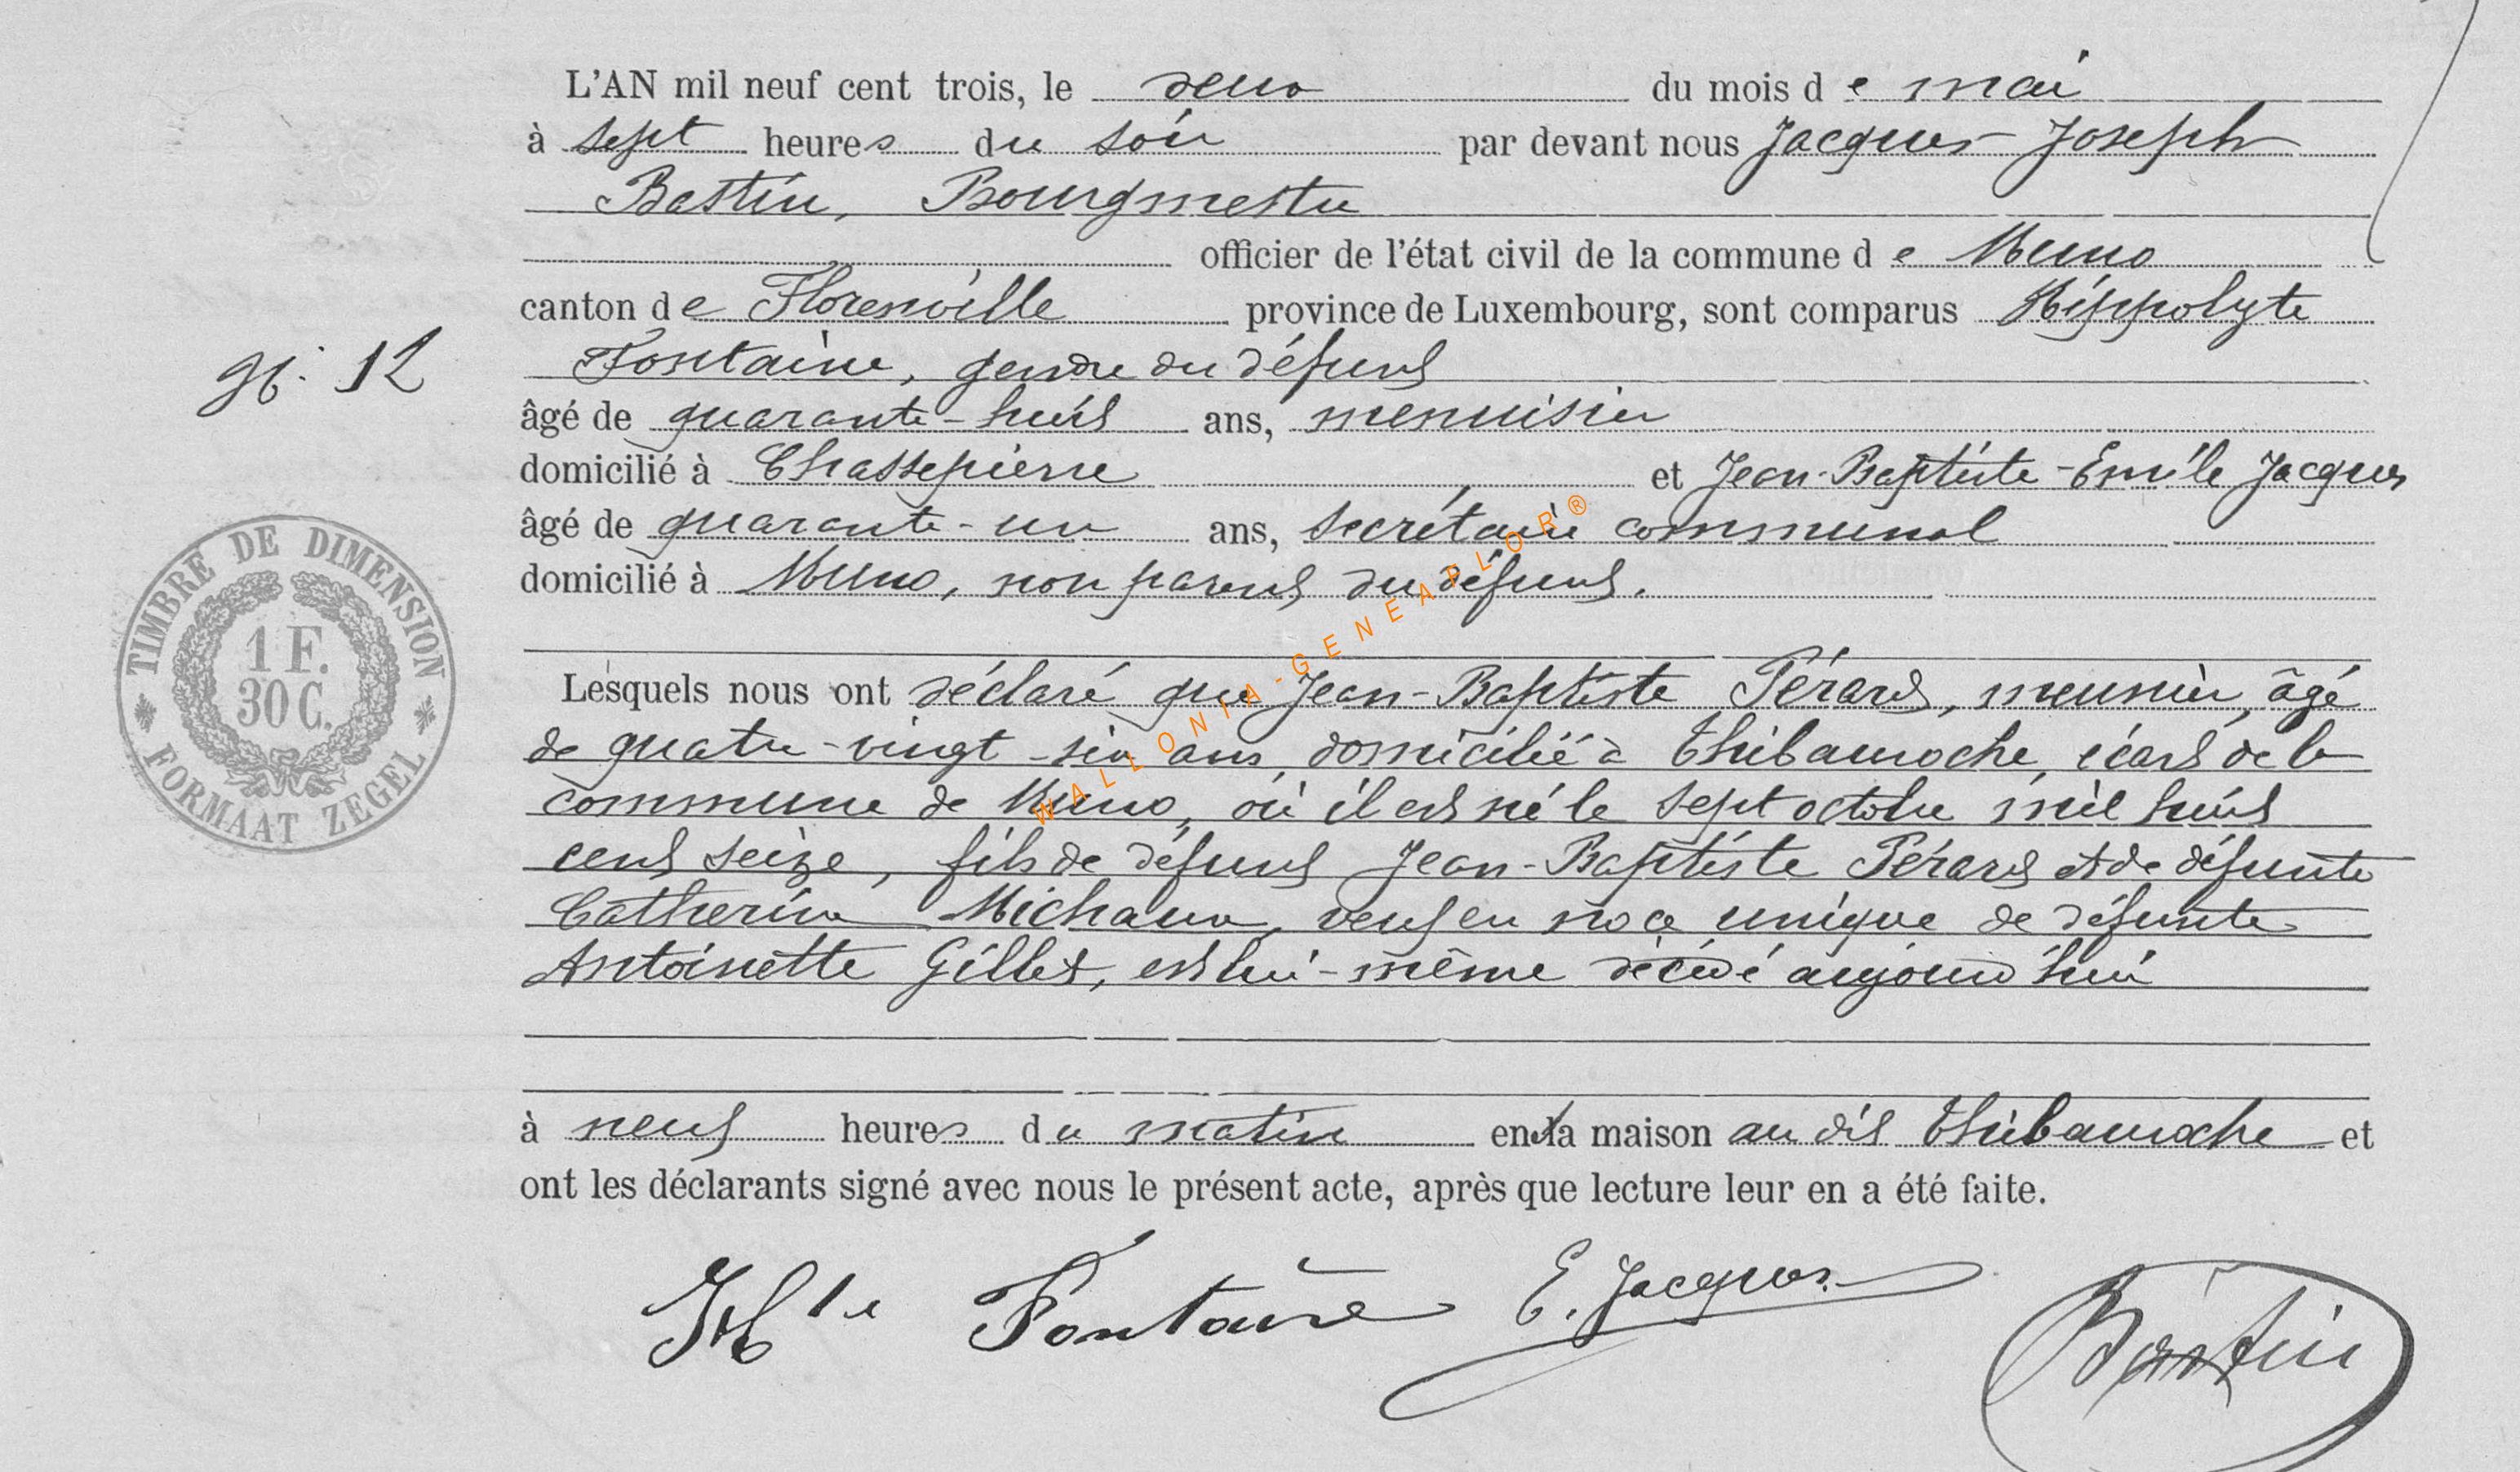 L'AN mil neuf cent trois, le deux du mois de mai
à sept heures du soir par devant nous Jacques Joseph
Bastin, Bourgmestre
officier de l'état civil de la commune de Muno
canton de Florenville province de Luxembourg, sont comparus Hippolyte
Fontaine, gendre du défunt
âgé de quarante-huit ans, menuisier
domicilié à Chassepierre et Jean-Baptiste-Emile Jacques
âgé de quarante-un ans, secrétaire communal
domicilié à Muno, non parent du défunt.
No. 12
TIMBRE DE DIMENSION
1 F.
30 C.
FORMAAT ZEGEL
Lesquels nous ont déclaré que Jean-Baptiste Pérard, meunier, âgé
de quatre-vingt-six ans, domicilié à Thibauroche, écart de la
commune de Muno, où il est né le sept octobre mil huit
cent seize, fils de défunt Jean-Baptiste Pérard et de défunte
Catherine Michaux, veuf en noce unique de défunte
Antoinette Gillet, est lui-même décédé aujourd'hui
à neuf heures du matin en la maison au dit Thibauroche et
ont les déclarants signé avec nous le présent acte, après que lecture leur en a été faite.
Hte Fontaine E. Jacques Bastin
WALLONIA-GENEAPLOR®